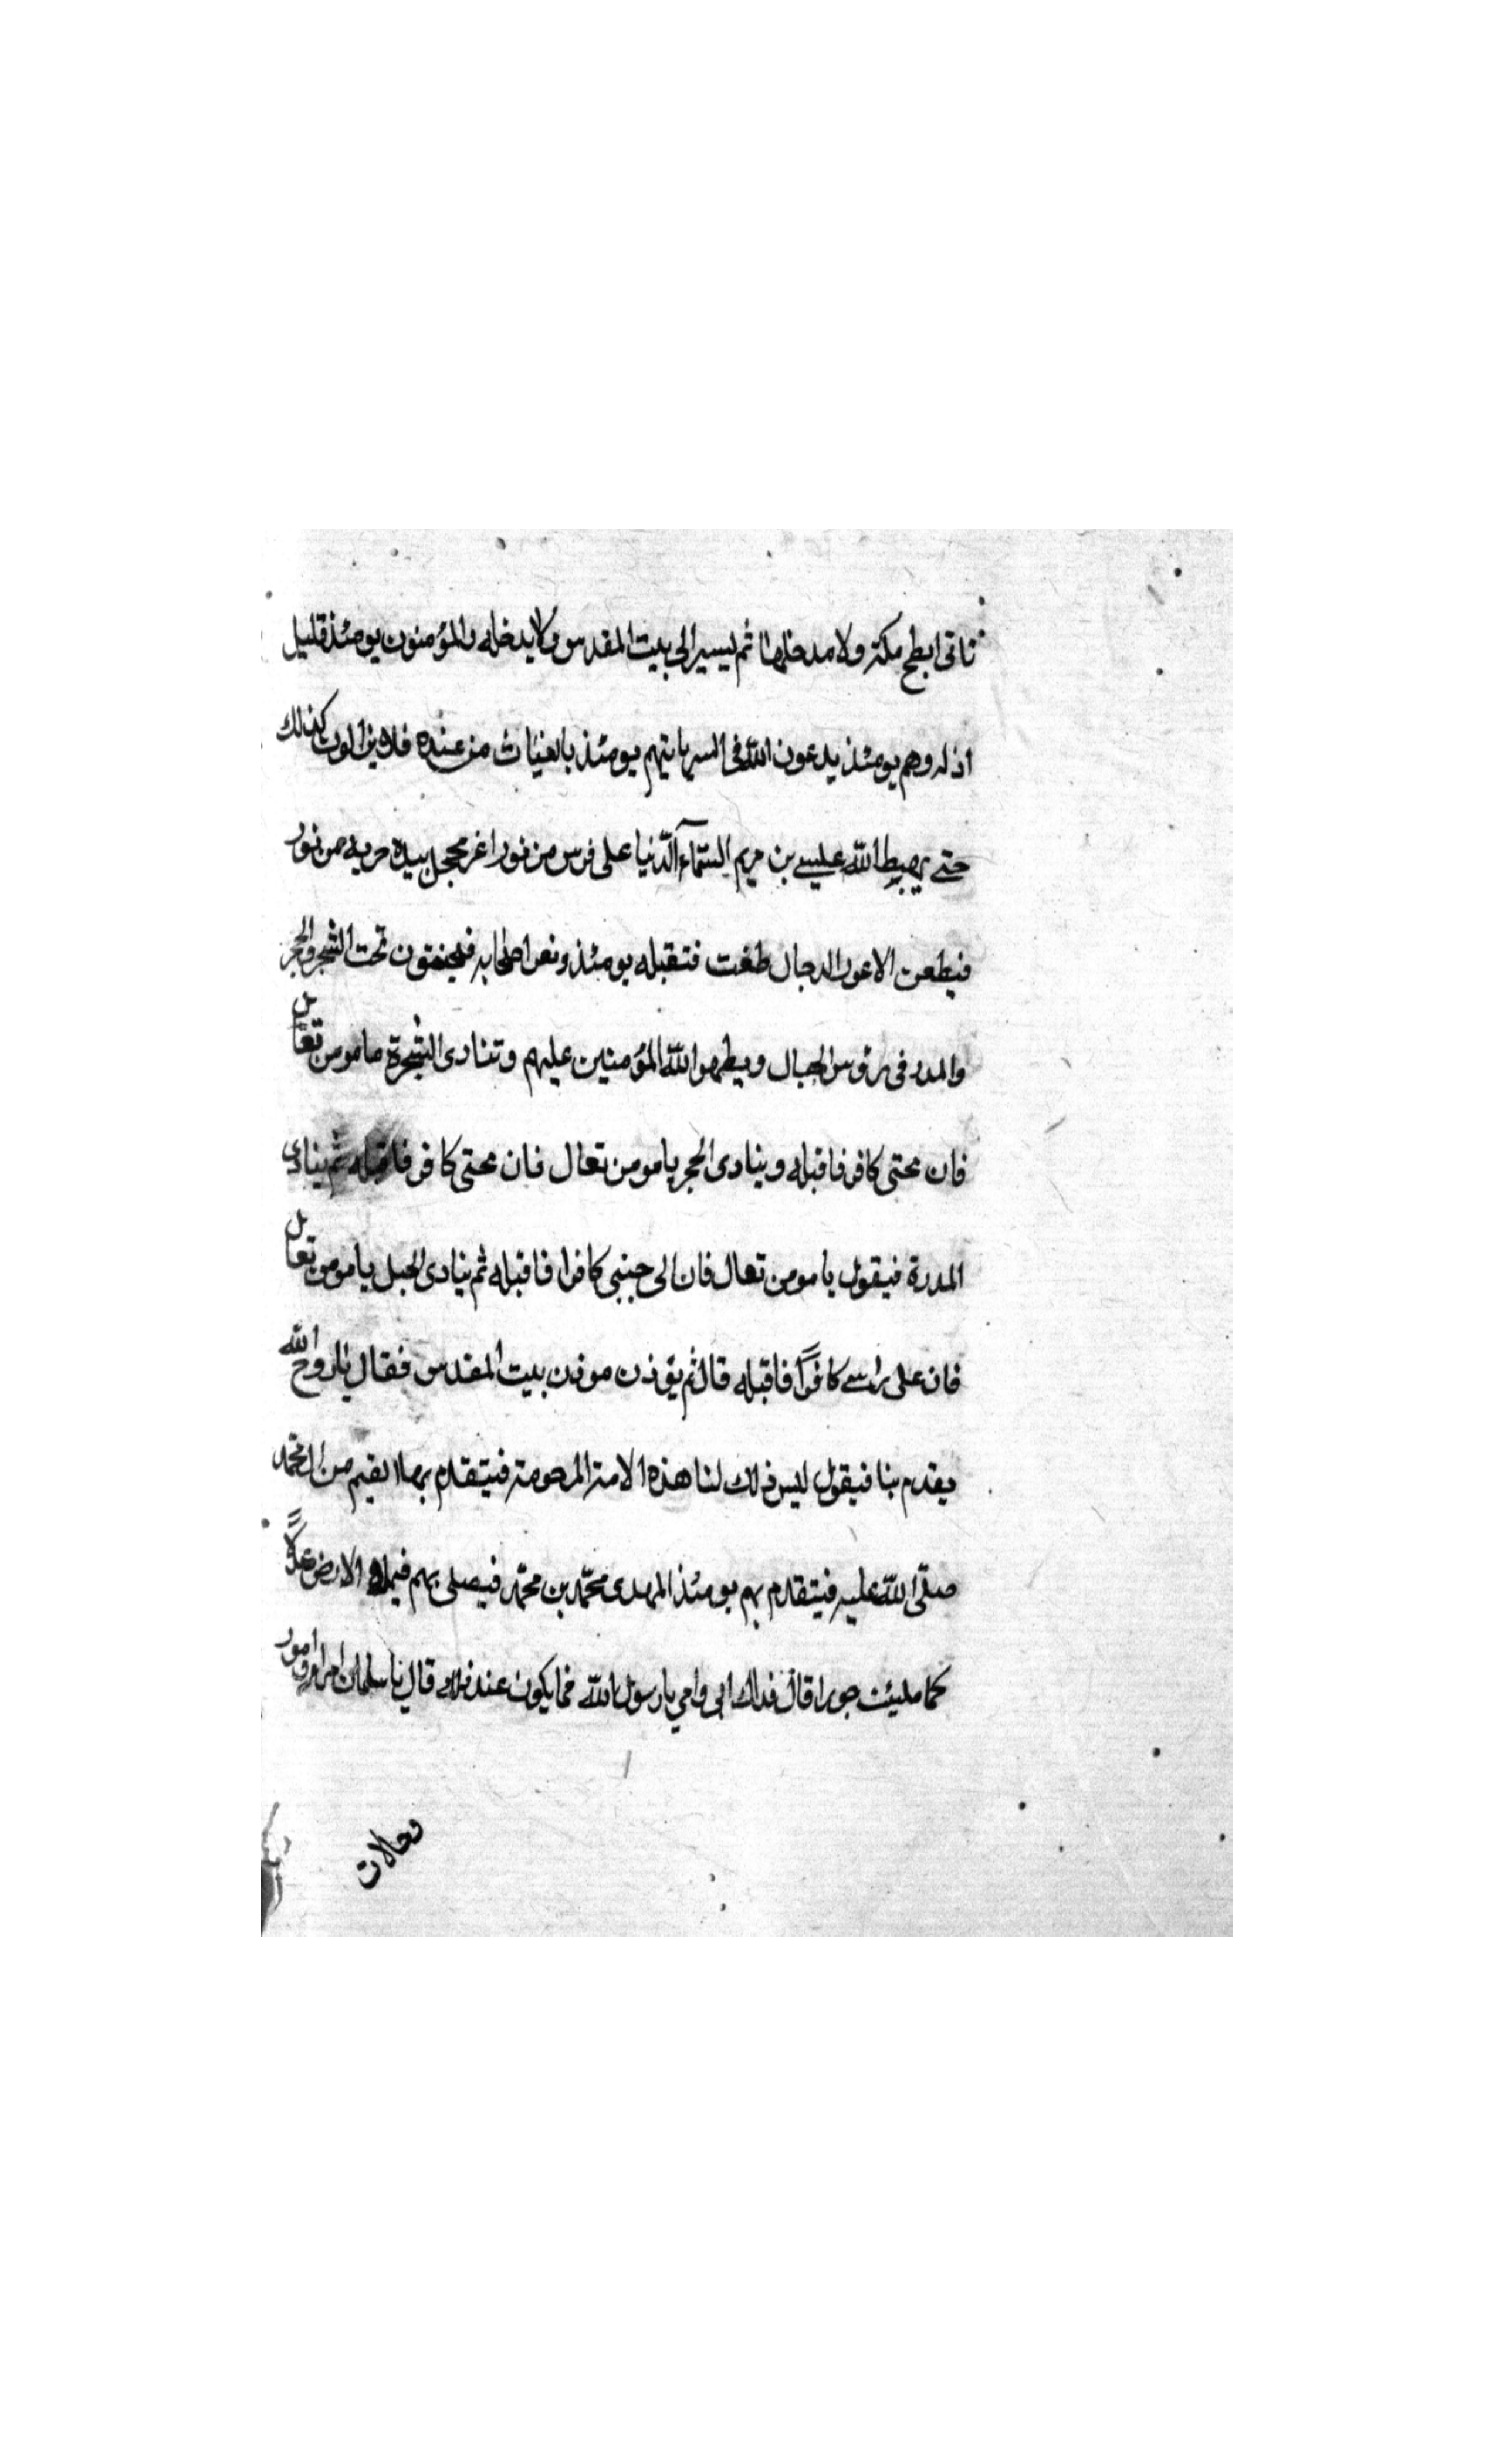 تاتى ابطح مكة ولا مدخلها ثم ليسير الى بيت المقدس ولا يدخله والمؤمنون يومئذ قليل
اذله وهم يومئذ يدعون الله فى السر يايتهم يومئذ بالغياث من عنده فلا يزالون كذلك
حتى يهبط الله عليسى بن مريم السمآء الدنيا على فرس من نور اغر محجل بيده حربة من نور
فيطعن الاعور الدجال طغت فتقبله يومئذ ونعر اصحابه فيختفون تحت الشجر والحجر
والمدر فى رؤوس الجبال ويطهر الله المؤمنين عليهم وتنادى الشجرة مامومن تعال
فان محتى كافر فاقبله وينادى الحجر يا مومن تعال فان محتى كافر فاقبله ثم ينادى
المدرة فيقول يا مومن تعال فان الى جنبى كافرا فاقبله ثم ينادى الجبل يا مومن تعال
فان على راسى كافرًا فاقبله قال ثم يؤذن موذن بيت المقدس فقال يا روح الله
يقدم بنا فيقول ليس ذلك لنا هذه الامة المرحومة فيتقدم بها ايقيم من ال محمد
صلى الله عليه فيتقدم بهم يومئذ المهدى محمد بن محمد فيصلى بهم فيملاء الارض عدلًا
كما مليئت جورا قال فداك ابى وامي يا رسول الله فما يكون عند قال يا سلمان امرا وامور
وحالات